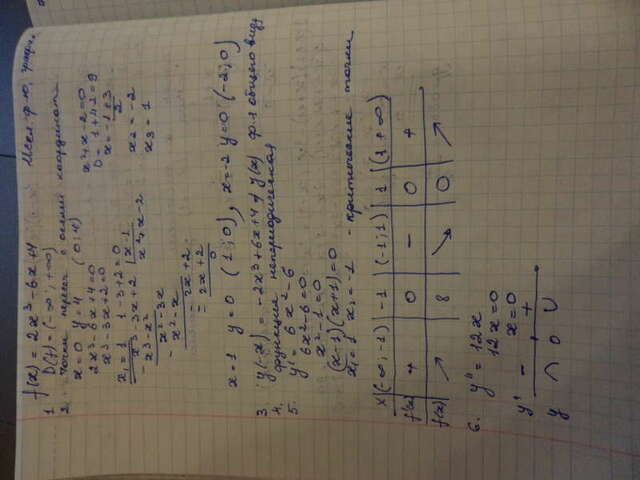 1. f(x) = 2x³ - 6x + 4 Иссл. ф-ю, график.
D(f) = (-∞; +∞)
2. Точки пересеч. с осями координат
x = 0 y = 4 (0; 4)
2x³ - 6x + 4 = 0
x³ - 3x + 2 = 0
x₁ = 1 1 - 3 + 2 = 0
x³ - 3x + 2 | x - 1
- x³ - x² x² + x - 2
x² - 3x
- x² - x
- 2x + 2
- 2x + 2
0
x² + x - 2 = 0
D = 1 + 42 = 9
x = -1 ± 3
2
x₂ = -2
x₃ = 1
x = 1 y = 0 (1; 0), x = -2 y = 0 (-2; 0)
3. y(-x) = -2x³ + 6x + 4 ≠ y(x) ф-я общего вида
4. функция непериодическая
5. y' = 6x² - 6
6x² - 6 = 0
x² - 1 = 0
(x - 1)(x + 1) = 0
x₁ = 1 x₂ = -1 - критические точки
x | (-∞; -1) | -1 | (-1; 1) | 1 | (1 +∞)
f'(x) | + | 0 | - | 0 | +
f(x) | ↗ | 8 | ↘ | 0 | ↗
6. y'' = 12x
12x = 0
x = 0
y' - +
y ∩ 0 ∪